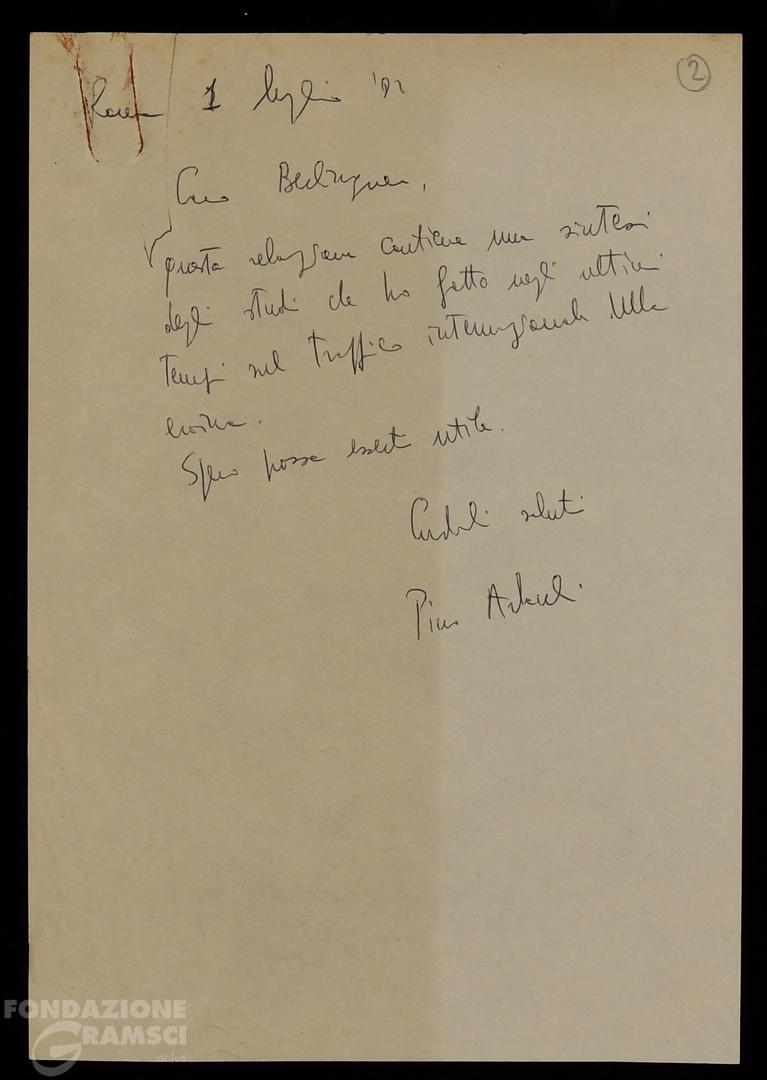 2
Roma 1 luglio '82
Caro Berlinguer,
questa relazione contiene una sintesi
degli studi che ho fatto negli ultimi
tempi sul traffico internazionale della
eroina.
Spero possa esserti utile.
Cordiali saluti
Pino Arlacchi
FONDAZIONE
GRAMSCI
onlus